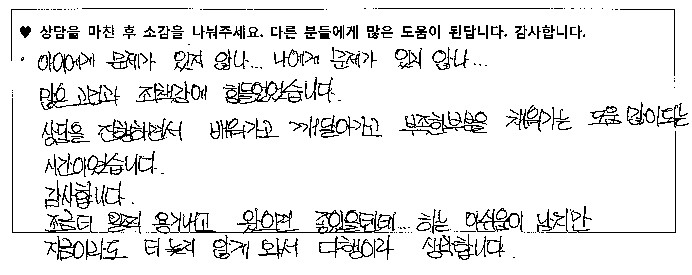 ♥ 상담을 마친 후 소감을 나눠주세요. 다른 분들에게 많은 도움이 된답니다. 감사합니다.
· 아이에게 문제가 있지 않나... 나에게 문제가 있지 않나...
많은 고민과 죄책감에 힘들었었습니다.
상담을 진행하면서 배워가고 깨달아가고 부족한부분을 채워가는 도움 많이되는
시간이었습니다.
감사합니다.
조금더 일찍 용기내고 왔으면 좋았을텐데... 하는 아쉬움이 남지만
지금이라도 더 늦지 않게 와서 다행이라 생각합니다.